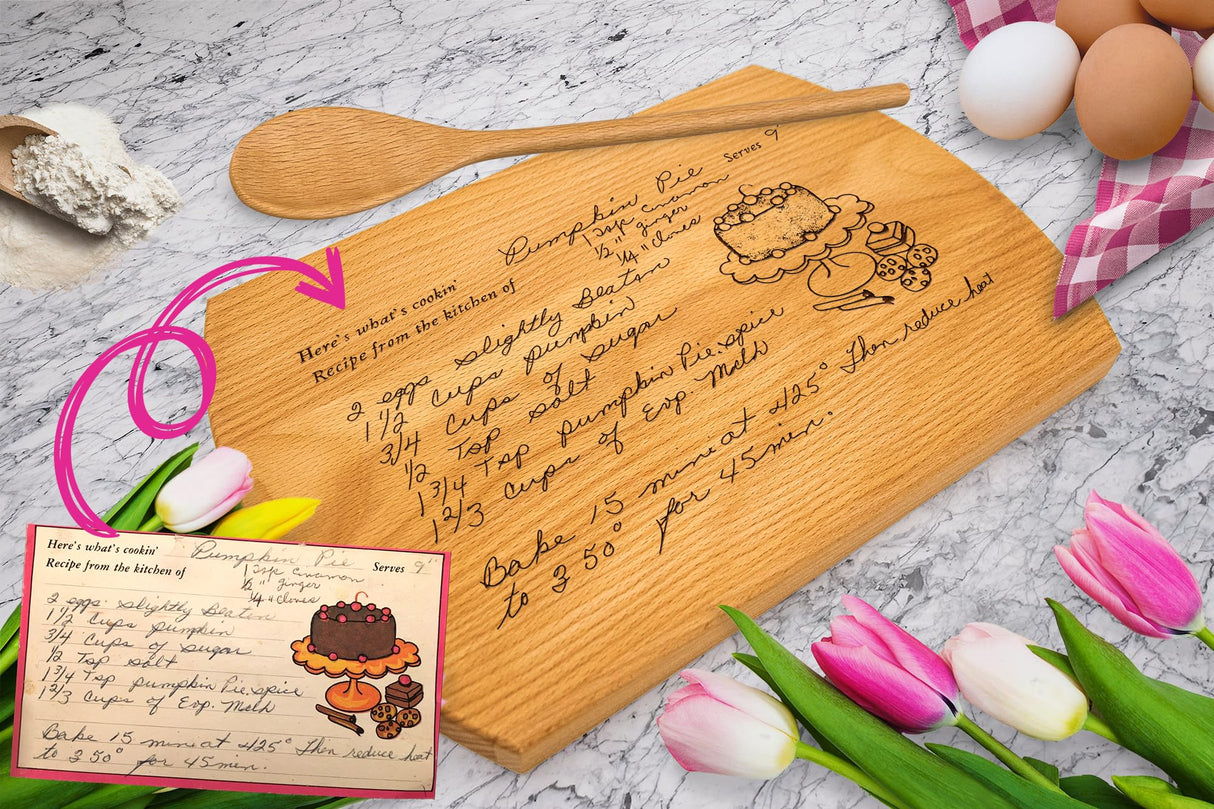 Pumpkin Pie Serves 9"
1 Tsp cinamon
1/2 " ginger
1/4 " Cloves
Here's what's cookin'
Recipe from the kitchen of
2 eggs slightly Beaton
1 1/2 Cups pumpkin
3/4 Cups of sugar
1/2 Tsp salt
1 3/4 Tsp pumpkin Pie.spice
1 2/3 Cups of Evp. Milk
Bake 15 mins at 425° Then reduce heat
to 350° for 45 min.
Here's what's cookin' Pumpkin Pie
Recipe from the kitchen of Serves 9"
1 Tsp cinamon
1/2 " ginger
1/4 " Cloves
2 eggs slightly Beaton
1 1/2 Cups pumpkin
3/4 Cups of sugar
1/2 Tsp salt
1 3/4 Tsp pumpkin Pie.spice
1 2/3 Cups of Evp. Milk
Bake 15 mins at 425° Then reduce heat
to 350° for 45 min.